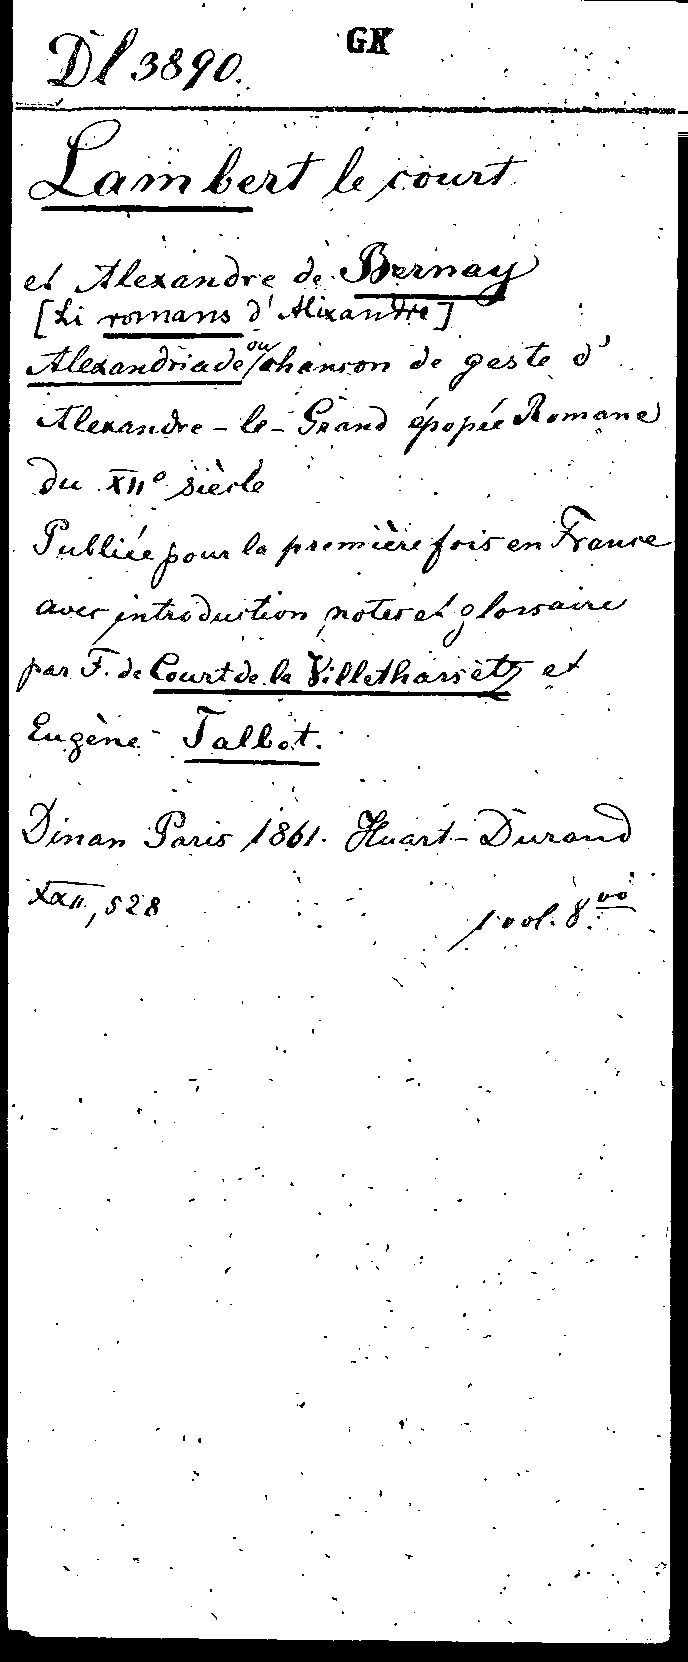 GK
Dl 3890.
Lambert le court
et Alexandre de Bernay
[Li romans d'Alixandre]
Alexandriade ou chanson de geste d'
Alexandre-le-Grand épopée Romane
du XIIe siècle
Publiée pour la première fois en France
avec introduction, notes et glossaire
par F. de Court de la Villethassetz et
Eugène Talbot.
Dinan Paris 1861. Huart-Durand
XXII, 528
1 vol. 8.vo